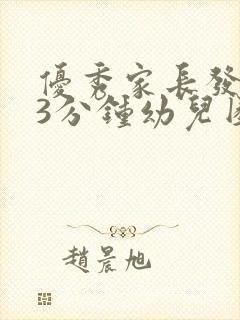 優秀家長發
3分鍾幼兒
趙晨旭